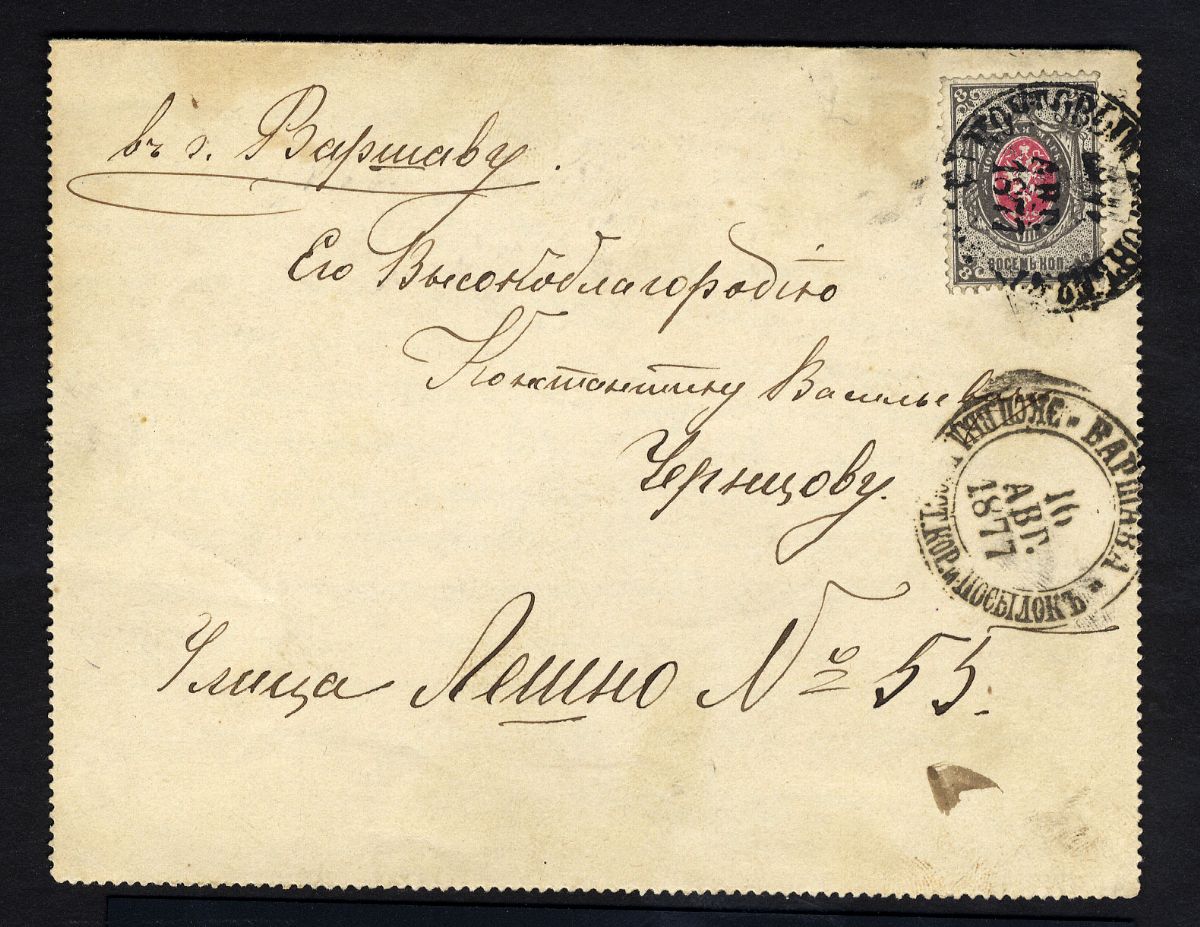 въ г. Варшаву.
Его Высокоблагородію
Константину Васильевичу
Чернцову.
Улица Лешно № 55.
ВОСЕМЬ КОП.
ВАРШАВА
КОР. и ПОСЫЛОКЪ
16
АВГ.
1877